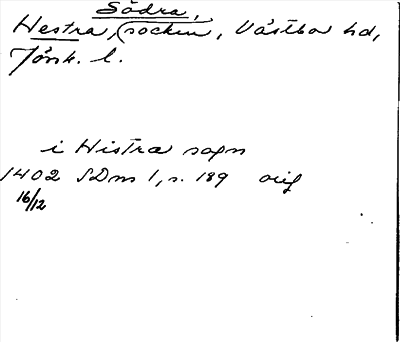 Södra,
Hestra, (socken), Västbo hd,
Jönk. l.
i Histra sogn
1402 SDns 1, s. 189 orig
16/12